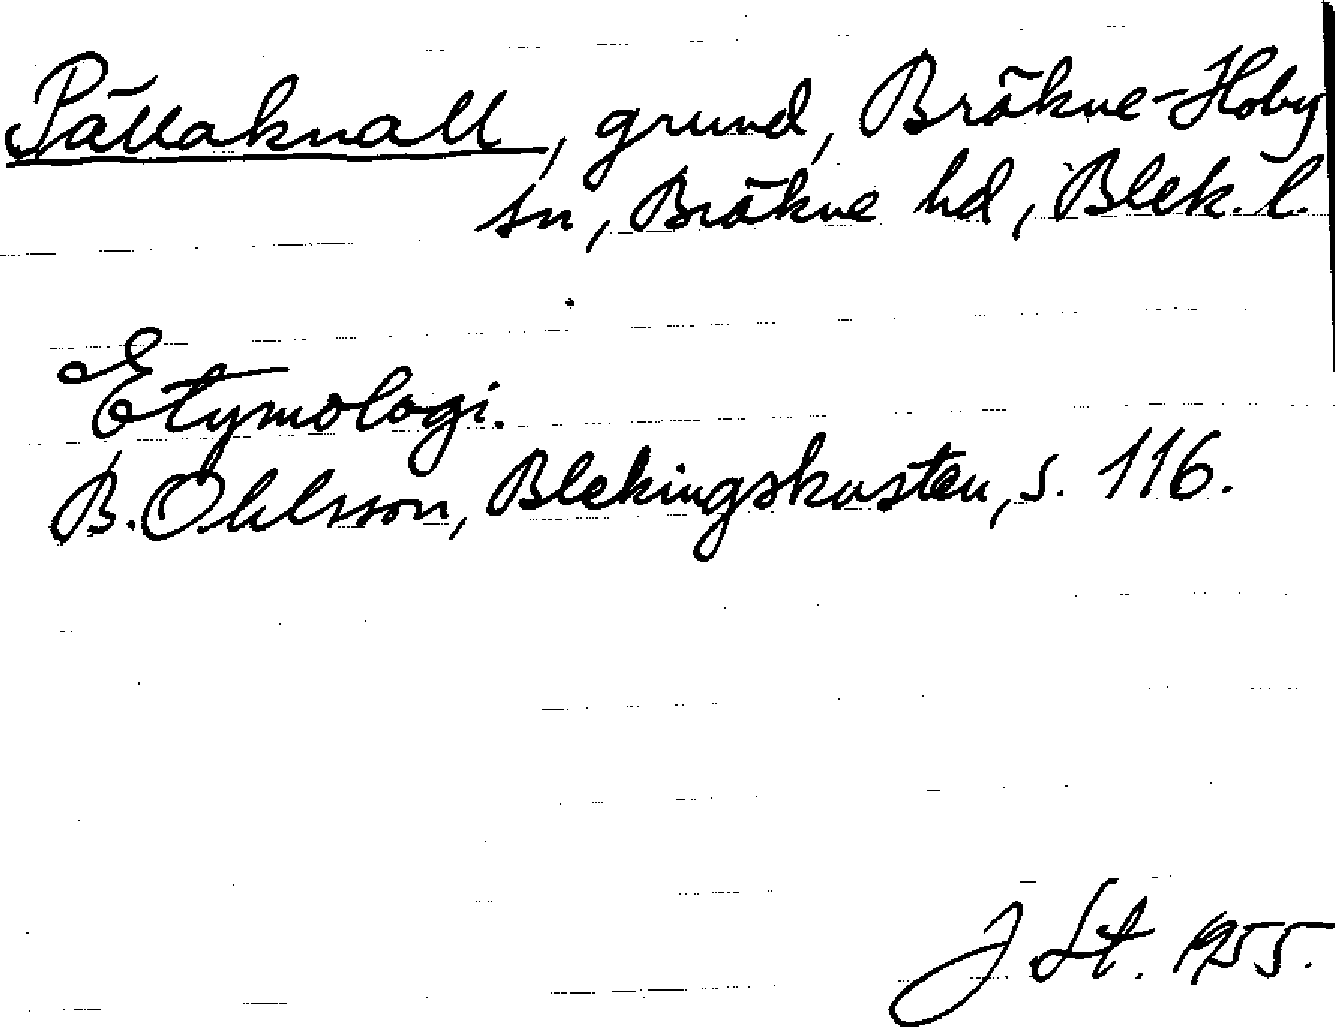 Pällaknall, grund, Bräkne-Hoby
sn, Bräkne hd, Blek. l.
Etymologi.
B. Ohlsson, Blekingskusten, s. 116.
J St. 1955.